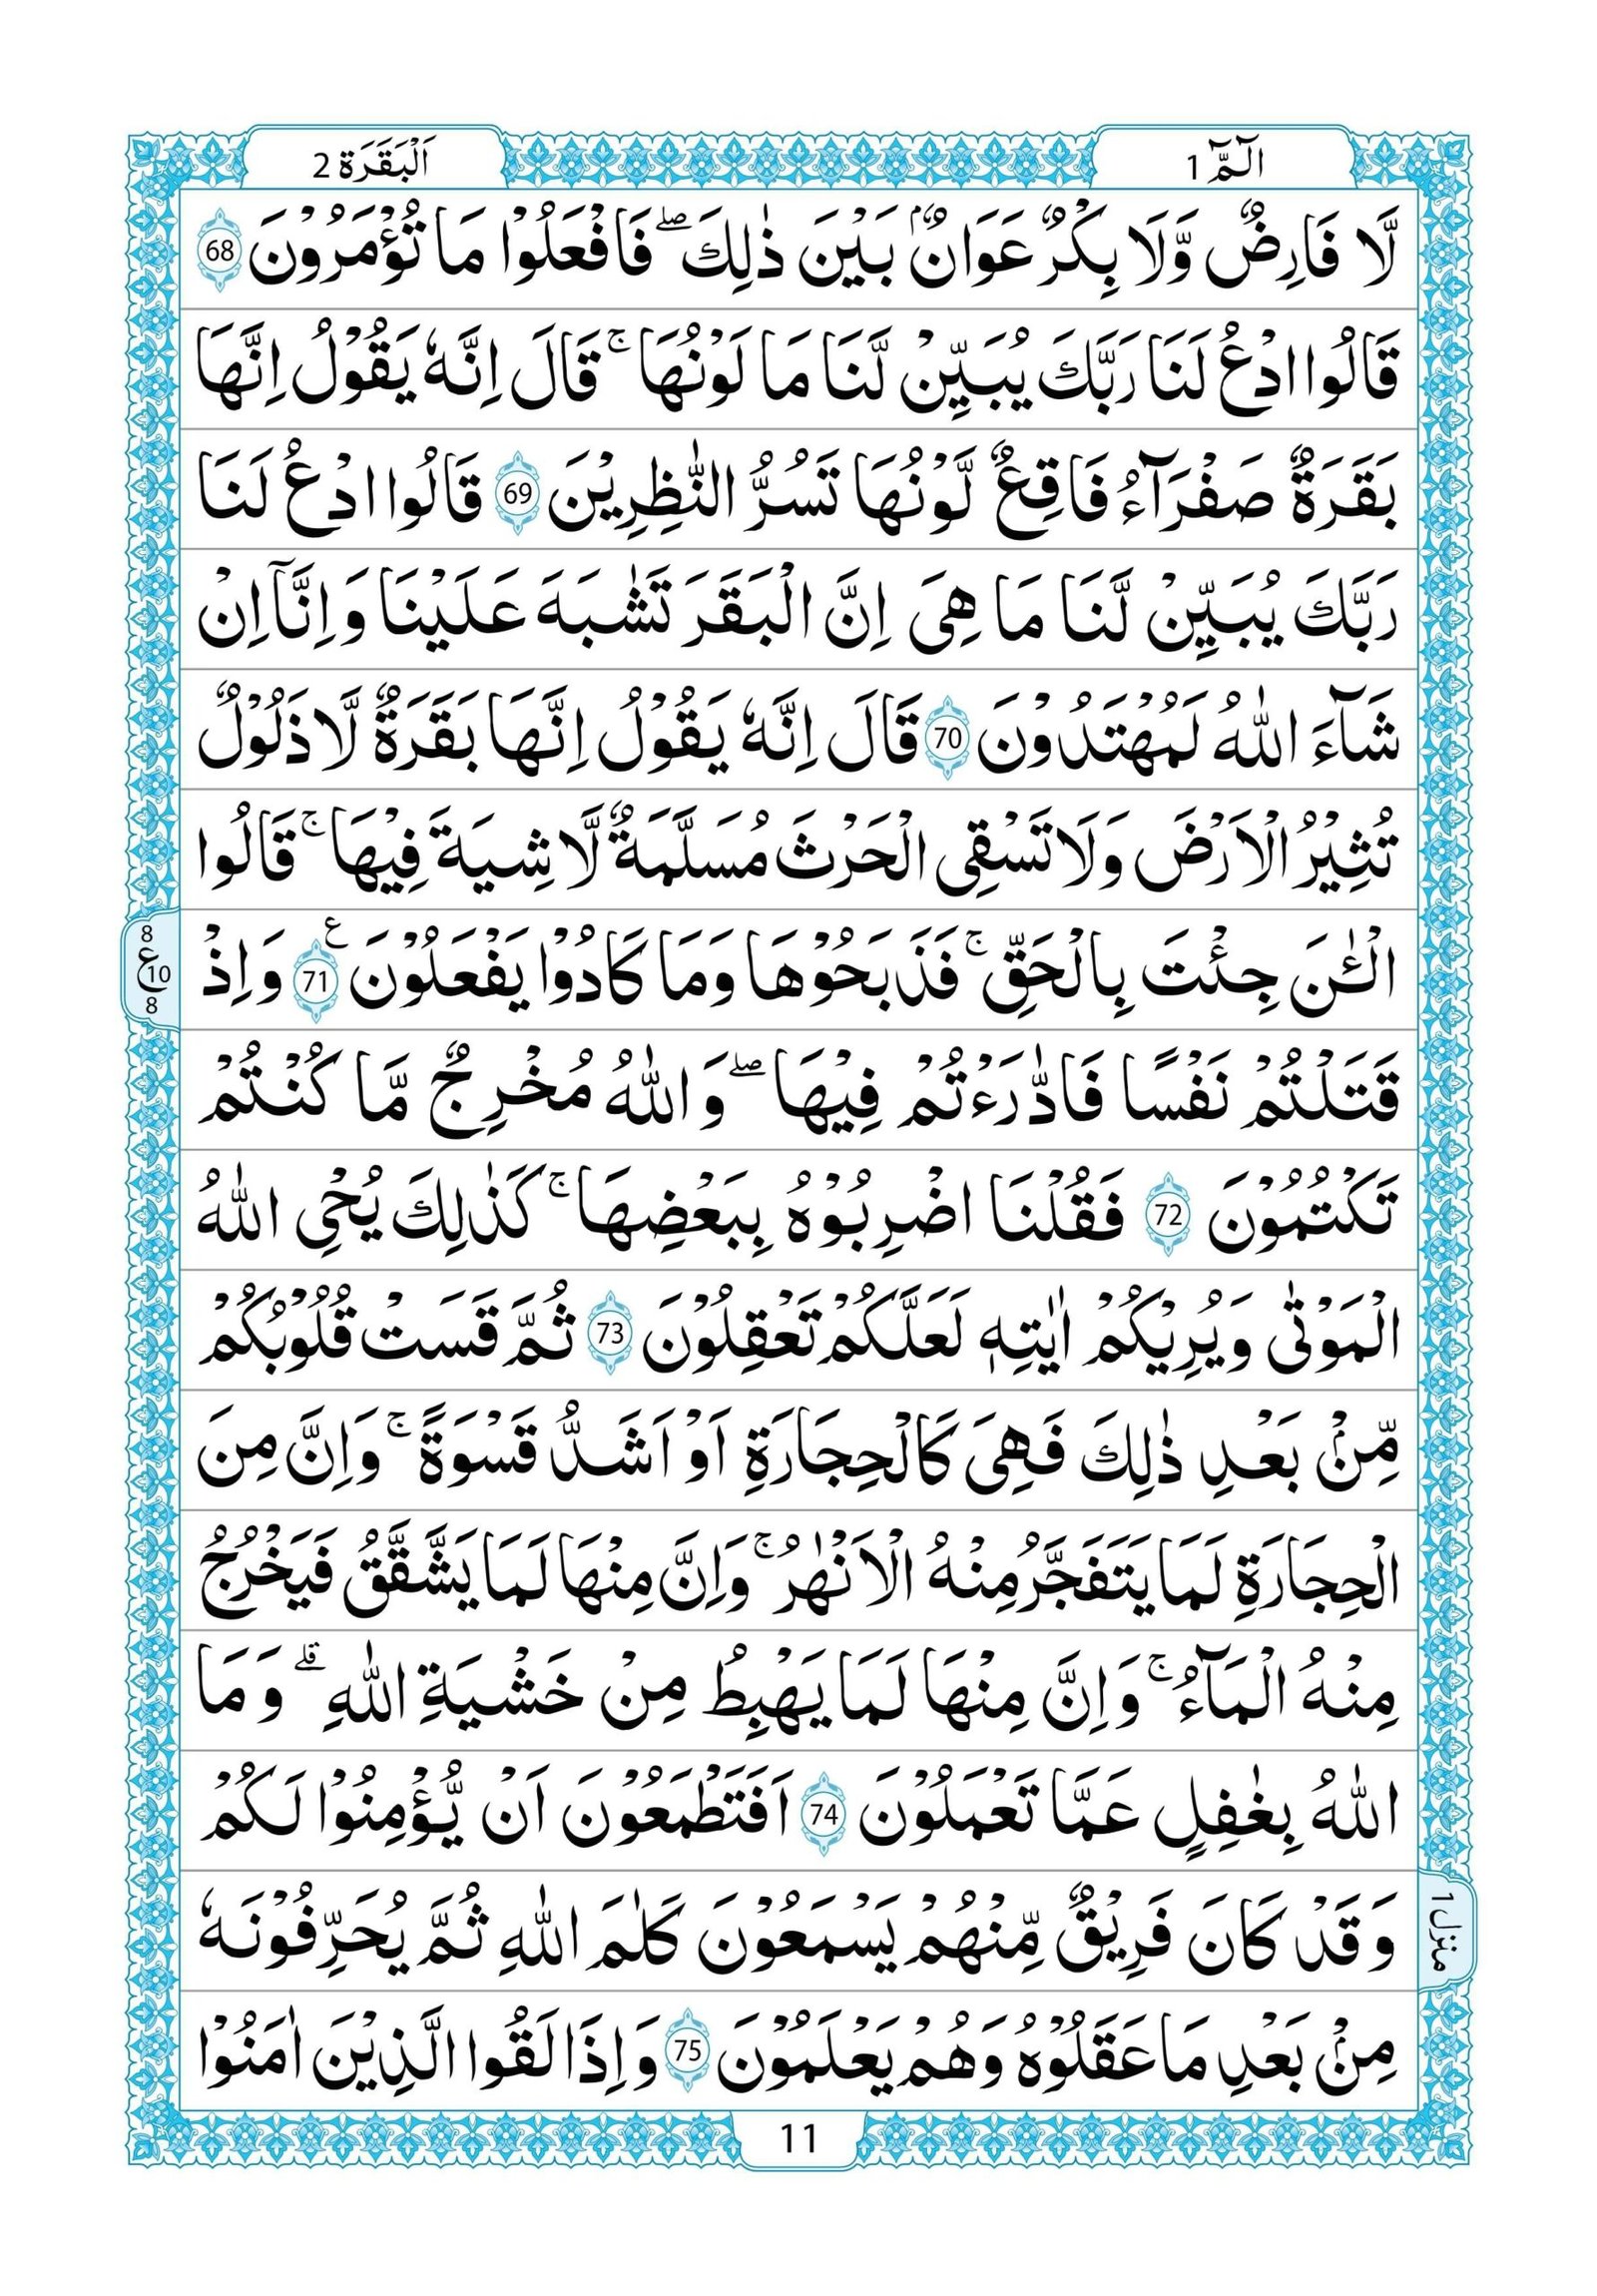 اَلْبَقَرَة 2
الٓمّٓ 1
لَّا فَارِضٌ وَّلَا بِكْرٌ عَوَانٌۢ بَيْنَ ذٰلِكَ ۖ فَافْعَلُوْا مَا تُؤْمَرُوْنَ 68
قَالُوا ادْعُ لَنَا رَبَّكَ يُبَيِّنْ لَّنَا مَا لَوْنُهَا ۚ قَالَ اِنَّهٗ يَقُوْلُ اِنَّهَا
بَقَرَةٌ صَفْرَآءُ فَاقِعٌ لَّوْنُهَا تَسُرُّ النّٰظِرِيْنَ 69 قَالُوا ادْعُ لَنَا
رَبَّكَ يُبَيِّنْ لَّنَا مَا هِيَ اِنَّ الْبَقَرَ تَشٰبَهَ عَلَيْنَا وَاِنَّآ اِنْ
شَآءَ اللّٰهُ لَمُهْتَدُوْنَ 70 قَالَ اِنَّهٗ يَقُوْلُ اِنَّهَا بَقَرَةٌ لَّا ذَلُوْلٌ
تُثِيْرُ الْاَرْضَ وَلَا تَسْقِى الْحَرْثَ مُسَلَّمَةٌ لَّا شِيَةَ فِيْهَا ۚ قَالُوا
الْـٰٔنَ جِئْتَ بِالْحَقِّ ۚ فَذَبَحُوْهَا وَمَا كَادُوْا يَفْعَلُوْنَ ع 71 وَاِذْ
8
ع 10
8
قَتَلْتُمْ نَفْسًا فَادّٰرَءْتُمْ فِيْهَا ۖ وَاللّٰهُ مُخْرِجٌ مَّا كُنْتُمْ
تَكْتُمُوْنَ 72 فَقُلْنَا اضْرِبُوْهُ بِبَعْضِهَا ۚ كَذٰلِكَ يُحْيِ اللّٰهُ
الْمَوْتٰى وَيُرِيْكُمْ اٰيٰتِهٖ لَعَلَّكُمْ تَعْقِلُوْنَ 73 ثُمَّ قَسَتْ قُلُوْبُكُمْ
مِّنْۢ بَعْدِ ذٰلِكَ فَهِيَ كَالْحِجَارَةِ اَوْ اَشَدُّ قَسْوَةً ۚ وَاِنَّ مِنَ
الْحِجَارَةِ لَمَا يَتَفَجَّرُ مِنْهُ الْاَنْهٰرُ ۚ وَاِنَّ مِنْهَا لَمَا يَشَّقَّقُ فَيَخْرُجُ
مِنْهُ الْمَآءُ ۚ وَاِنَّ مِنْهَا لَمَا يَهْبِطُ مِنْ خَشْيَةِ اللّٰهِ ۗ وَمَا
اللّٰهُ بِغٰفِلٍ عَمَّا تَعْمَلُوْنَ 74 اَفَتَطْمَعُوْنَ اَنْ يُّؤْمِنُوْا لَكُمْ
وَقَدْ كَانَ فَرِيْقٌ مِّنْهُمْ يَسْمَعُوْنَ كَلٰمَ اللّٰهِ ثُمَّ يُحَرِّفُوْنَهٗ
منزل 1
مِنْۢ بَعْدِ مَا عَقَلُوْهُ وَهُمْ يَعْلَمُوْنَ 75 وَاِذَا لَقُوا الَّذِيْنَ اٰمَنُوْا
11